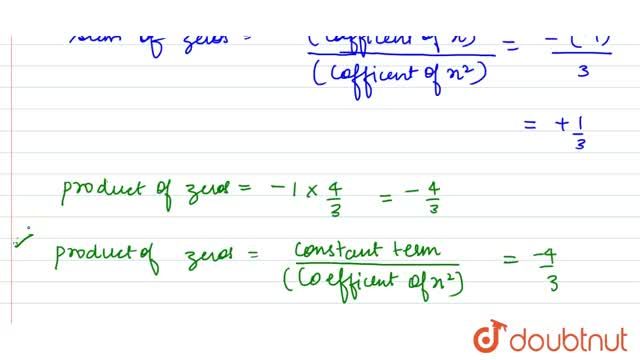 sum of zeros = (Cofficent of x) / (Cofficent of x²) = -(-1) / 3
= + 1/3
product of zeros = -1 × 4/3 = - 4/3
product of zeros = constant term / (Coefficent of x²) = -4/3
doubtnut